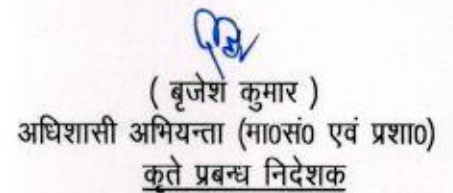 ( बृजेश कुमार )
अधिशासी अभियन्ता (मा0सं0 एवं प्रशा0)
कृते प्रबन्ध निदेशक